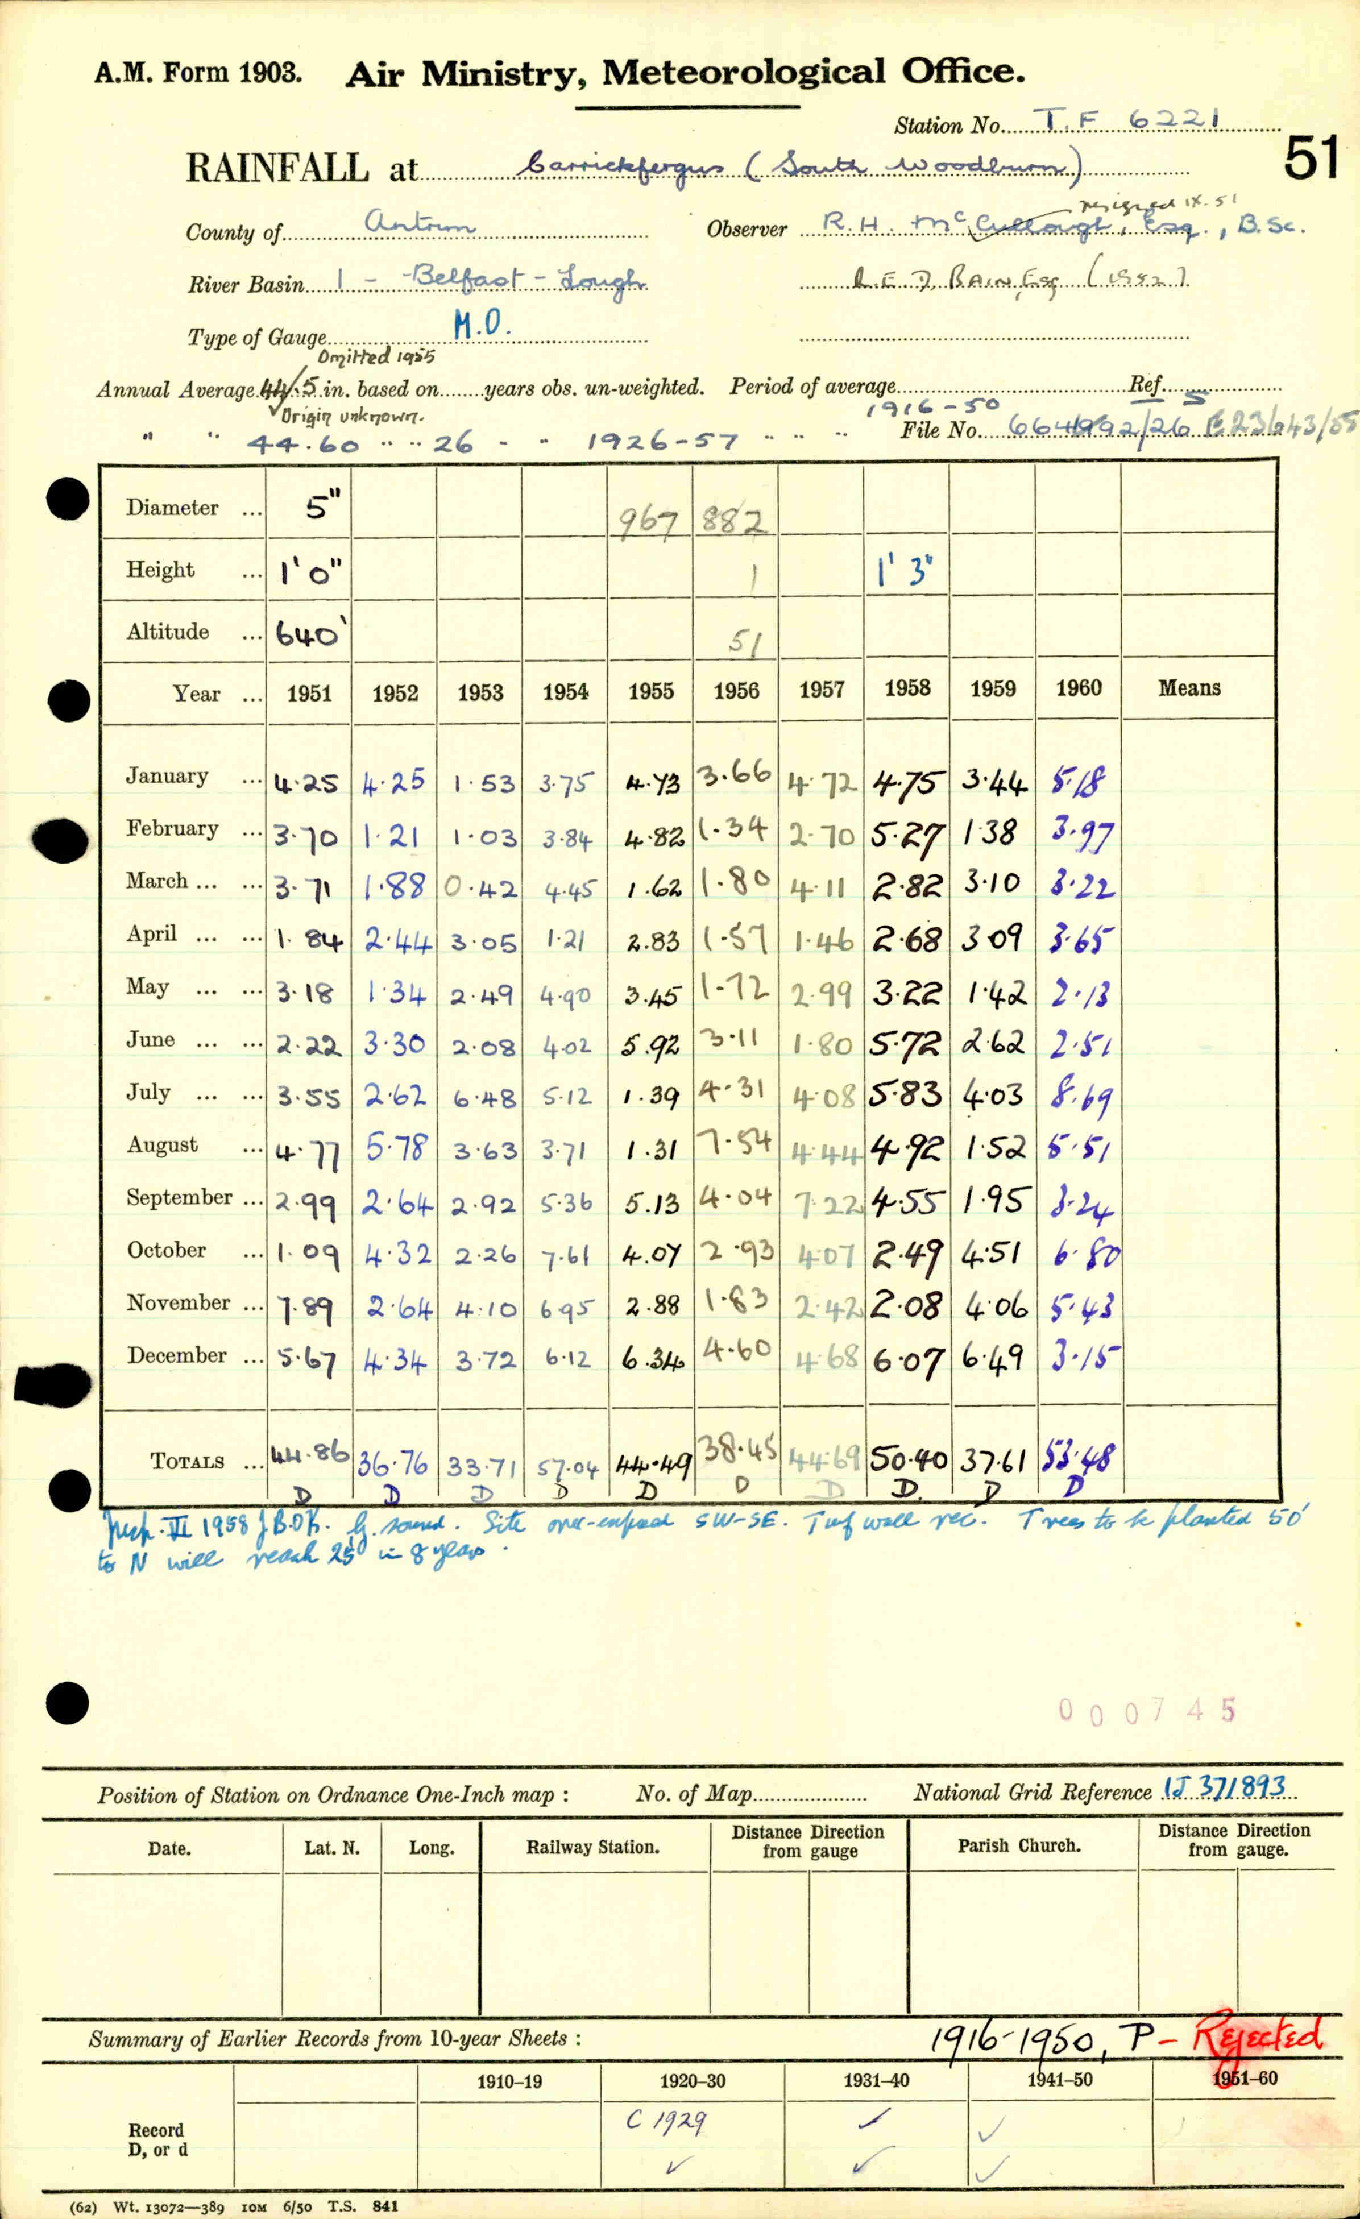 A.M. Form 1903. Air Ministry, Meteorological Office.
Station No. T.F 6221
51
RAINFALL at Carrickfergus (South Woodburn)
resigned IX.51
County of Antrim Observer R.H. McCullough, Esq., B.Sc.
River Basin 1 - Belfast - Lough R.E.D. BAIN, Esq (1952)
Type of Gauge M.O.
Omitted 1955
Annual Average 44.5 in. based on years obs. un-weighted. Period of average Ref. S
Origin unknown. 1916-50
" " 44.60 " " 26 - " 1926-57 " " " File No. 664992/26
Diameter ... 5" 967 882
Height ... 1' 0" 1 1' 3"
Altitude ... 640' 51
Year ... 1951 1952 1953 1954 1955 1956 1957 1958 1959 1960 Means
January ... 4.25 4.25 1.53 3.75 4.73 3.66 4.72 4.75 3.44 5.18
February ... 3.70 1.21 1.03 3.84 4.82 1.34 2.70 5.27 1.38 3.97
March ... ... 3.71 1.88 0.42 4.45 1.62 1.80 4.11 2.82 3.10 3.22
April ... ... 1.84 2.44 3.05 1.21 2.83 1.57 1.46 2.68 3.09 3.65
May ... ... 3.18 1.34 2.49 4.90 3.45 1.72 2.99 3.22 1.42 2.13
June ... ... 2.22 3.30 2.08 4.02 5.92 3.11 1.80 5.72 2.62 2.51
July ... ... 3.55 2.62 6.48 5.12 1.39 4.31 4.08 5.83 4.03 8.69
August ... 4.77 5.78 3.63 3.71 1.31 7.54 4.44 4.92 1.52 5.51
September ... 2.99 2.64 2.92 5.36 5.13 4.04 7.22 4.55 1.95 3.24
October ... 1.09 4.32 2.26 7.61 4.07 2.93 4.07 2.49 4.51 6.80
November ... 7.89 2.64 4.10 6.95 2.88 1.83 2.42 2.08 4.06 5.43
December ... 5.67 4.34 3.72 6.12 6.34 4.60 4.68 6.07 6.49 3.15
TOTALS ... 44.86 36.76 33.71 57.04 44.49 38.45 44.69 50.40 37.61 53.48
D D D D D D D D. D D
Insp. VII 1958 J.B.O'K. G. sound. Site over-exposed SW-SE. Turf wall rec. Trees to be planted 50'
to N will reach 25' in 8 years.
0 0 0 7 4 5
Position of Station on Ordnance One-Inch map : No. of Map National Grid Reference IJ 371893
Date. Lat. N. Long. Railway Station. Distance from gauge Direction Parish Church. Distance from gauge. Direction
Summary of Earlier Records from 10-year Sheets : 1916-1950, P - Rejected
1910–19 1920–30 1931–40 1941–50 1951–60
Record C 1929 ✓ ✓
D, or d ✓ ✓ ✓
(62) Wt. 13072—389 10M 6/50 T.S. 841